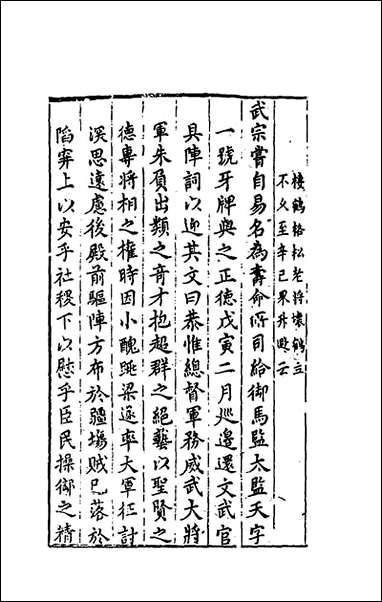 棲鶴格松老將壞鶴立
不久至辛己果升遐云
武宗嘗自易名為壽命所司給御馬監太監天字
一號牙牌與之正德戊寅二月巡邊還文武官
具陣詞以迎其文曰恭惟總督軍務威武大將
軍朱負出類之竒才抱超群之絕藝以聖賢之
德專將相之權時因小醜跳梁遂率大軍征討
深思遠慮後殿前驅陣方布於疆場賊已落於
陷穽上以安乎社稷下以慰乎臣民操御之精